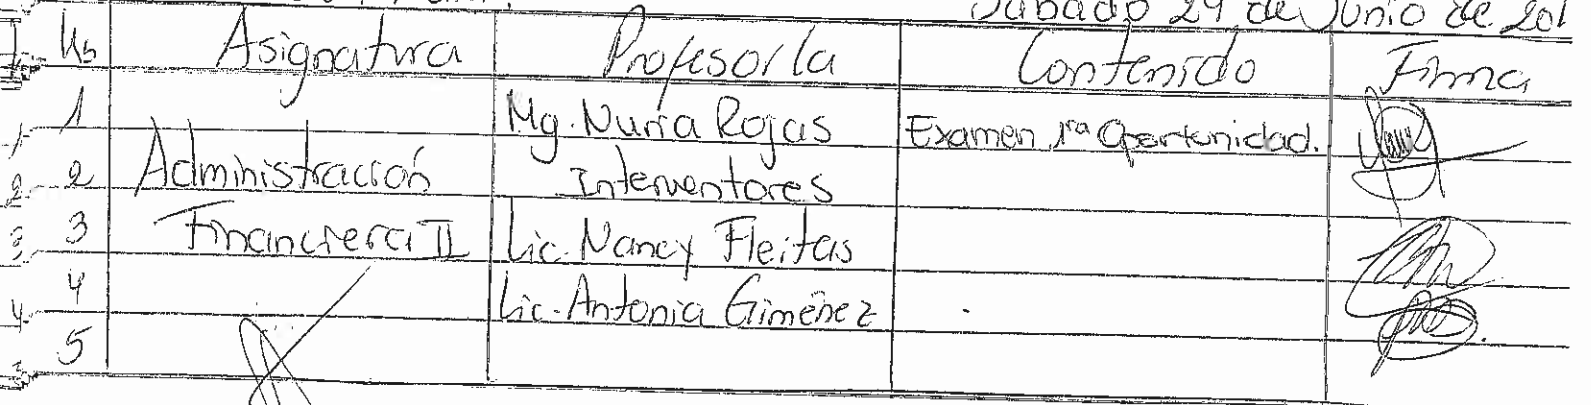 Sábado 29 de Junio de 201
Hs Asignatura Profesor/a Contenido Firma
1 Mg. Nuria Rojas Examen 1ra Oportunidad.
2 Administración Interventores
3 Financiera II Lic. Nancy Fleitas
4 Lic. Antonia Giménez
5